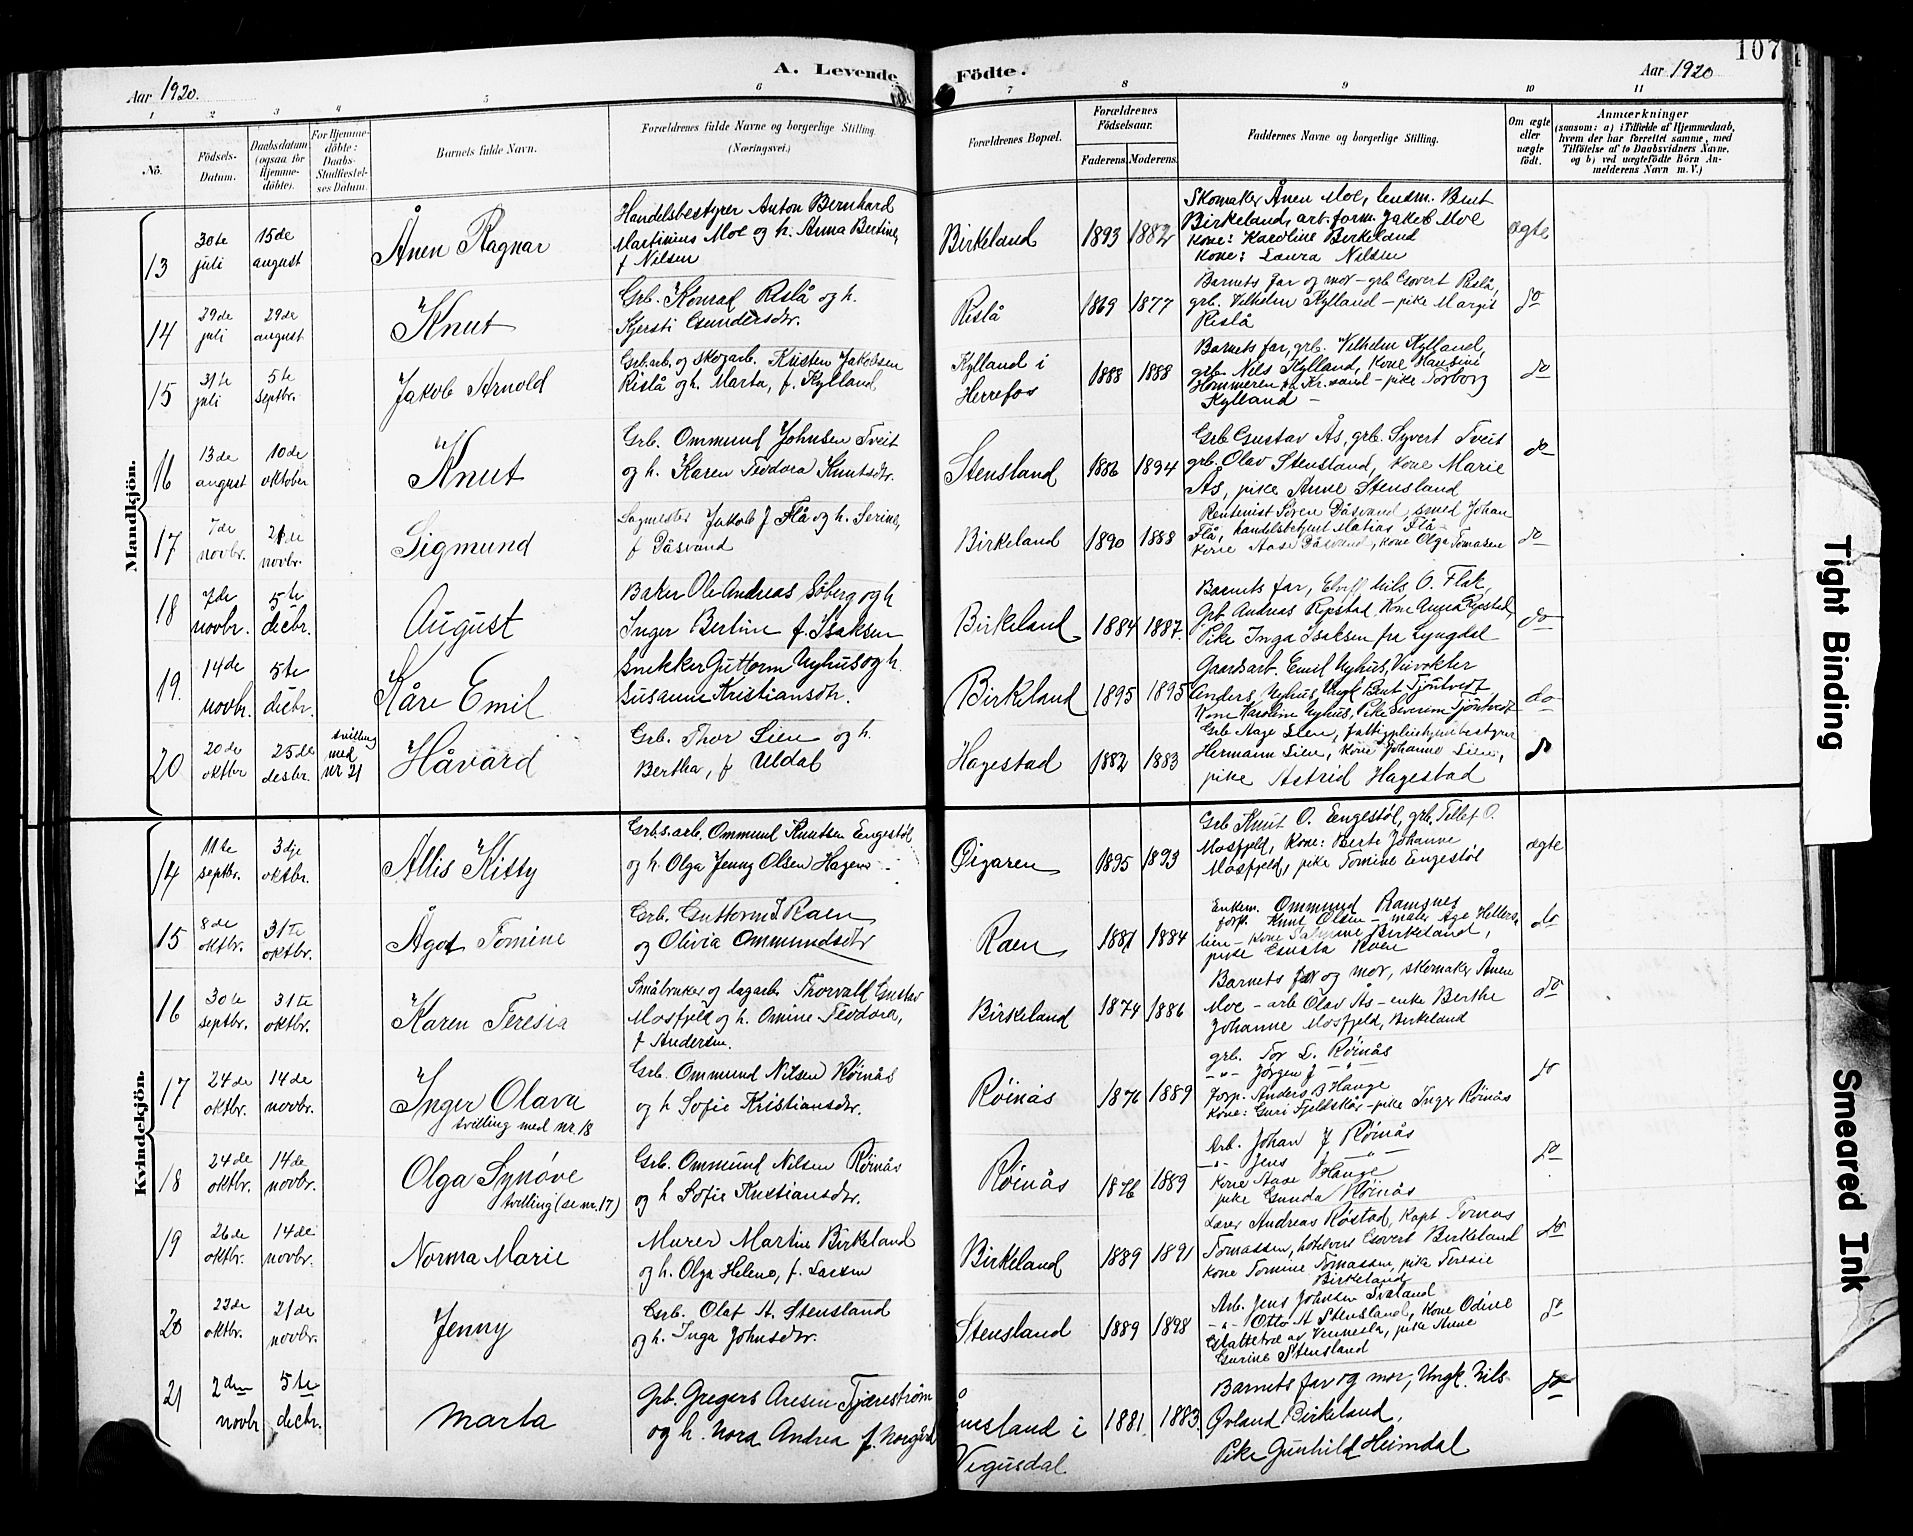 107
Aar 1920.
A. Levende Födte.
Aar 1920
1 2 3 4 5 6 7 8 9 10 11
No.
Födsels-Datum.
Daabsdatum (ogsaa for Hjemmedöbte).
For Hjemmedöbte: Daabs-Stadfæstelses Datum.
Barnets fulde Navn.
Forældrenes fulde Navne og borgerlige Stilling.
(Næringsvei.)
Forældrenes Bopæl.
Forældrenes Födselsaar.
Faderens. Moderens.
Faddernes Navne og borgerlige Stilling.
Om ægte eller uægte født.
Anmærkninger
(saasom: a) i Tilfælde af Hjemmedaab,
hvem der har forrettet samme, med
Tilföielse af to Daabsvidners Navne,
og b) ved uægtefödte Börn Anmelderens Navn m. V.)
Mandkjön.
13 30te juli 15de august Ånen Ragnar
Handelsbestyrer Anton Bernhard
Martinius Moe og h. Anna Bertine,
f Nilsen
Birkeland 1893 1882
Skomaker Ånen Moe, lensm. Bent
Birkeland, arb.form. Jakob Moe
Kone: Karoline Birkeland
Kone: Laura Nilsen
ægte
14 29de juli 29de august Knut
Grb. Konrad Rislå og h.
Kjersti Gundersdtr.
Rislå 1869 1877
Barnets far og mor - grb Govert Rislå,
grb. Vilhelm Kylland - pike Margit
Rislå
do
15 31te juli 5te septbr. Jakob Arnold
Grb.arb. og skogarb. Kristen Jakobsen
Rislå og h. Marta, f. Kylland
Kylland i
Herrefos
1888 1888
Barnets far, grb. Vilhelm Kylland,
grb. Nils Kylland, Kone Hansine
Hommeren på Kr.sand - pike Torborg
Kylland -
do
16 13de august 10de oktober Knut
Grb. Ommund Johnsen Tveit
og h. Karen Teodora Knutsdtr.
Stensland 1886 1894
Grb Gustav Ås, grb. Syvert Tveit
grb. Olav Stensland, kone Marie
Ås, pike Anne Stensland
do
17 7de novbr. 21de novbr. Sigmund
Sagmester Jakob J Flå og h. Serine,
f Dåsvand
Birkeland 1890 1888
Rentenist Søren Dåsvand, smed Johan
Flå, handelsbetjent Matias Flå -
kone Aase Dåsvand, kone Olga Tomasen
do
18 7de novbr. 5te decbr. August
Baker Ole Andreas Søberg og h
Inger Bertine f. Isaksen
Birkeland 1884 1887.
Barnets far, Nils O. Flak,
Grb Andreas Repstad, Kone Anna Repstad,
Pike Inga Isaksen fra Lyngdal
do
19. 14de novbr. 5te decbr. Kåre Emil
Snekker Guttorm Nyhus og h.
Susanne Kristiansdtr.
Birkeland 1895 1895
Gaardsarb. Emil Nyhus,
Anders Nyhus, Ungk Bent Tjöntvedt
Kone Karoline Nyhus, Pike Severine Tjöntvedt
do
20 20de oktbr 25de desbr. tvilling med nr 21 Håvard
Grb. Thor Lien og h.
Bertha, f Uldal
Hagestad 1882 1883
Grb Aage Lien, fattigpleiehjembestyrer
Hermann Lien, Kone Johanne Lien,
pike Astrid Hagestad
do
Kvindekjön.
14 11te septbr. 3dje oktbr. Allis Kitty
Grb.s.arb. Ommund Knutsen Engestøl
og h. Olga Jenny Olsen Hagene
Øigaren 1895 1893
Grb Knut O. Engestøl, grb. Tellef O.
Mosfjeld, Kone: Berte Johanne
Mosfjeld, pike Tomine Engestøl
ægte
15 8de oktbr. 31te oktbr. Ågot Tomine
Grb. Guttorm T Raen
og Olivia Ommundsdtr
Raen 1881 1884
Enkem. Ommund Ramsnes
forp. Knut Olsen - maler Åge Hellers-
lien - kone Birkeland,
pike Gusta Raen
do
16 30te septbr. 31te oktbr. Karen Teresia
Småbruker og dagarb. Thorvald Gustav
Mosfjeld og h. Omine Teodora,
f Andersen.
Birkeland 1874 1886
Barnets far og mor, skomaker Ånen
Moe - arb Olav Ås - enke Berthe
Johanne Mosfjeld, Birkeland
do
17 24de oktbr. 14de novbr. Inger Olava
tvilling med nr. 18
Grb. Ommund Nilsen Røinås
og h Sofie Kristiansdtr.
Røinås 1876 1889
grb. Tor L. Røinås
-"- Jørgen J -"-
Forp. Anders B Hauge
Kone: Guri Fjeldskår - pike Inger Røinås
do
18 24de oktbr. 14de novbr. Olga Synøve
tvilling (se nr. 17)
Grb. Ommund Nilsen Røinås
og h Sofie Kristiansdtr.
Røinås 1876 1889
Arb. Johan J Røinås
-"- Jens J -"-
Kone Aase Hauge
pike Gunda Røinås
do
19 26de oktbr. 14de novbr. Norma Marie
Murer Martin Birkeland
og h. Olga Helene, f. Larsen
Birkeland 1889 1891
Lærer Andreas Røstad, Kapt Tomas
Tomassen, Govert Birkeland
Kone Tomine Tomassen, pike Teresie
Birkeland
do
20 22de oktbr. 21de novbr. Jenny
Grb. Olaf A. Stensland
og h. Inga Johnsdtr.
Stensland 1889 1898
Arb. Jens Johnsen Tveland
-"- Otto A Stensland, Kone Odine
Glattetræ av Vennesla, pike Anne
Gurine Stensland
do
21 2den novbr 5te decbr. Marta
Grb. Gregers Anesen Tjærestrøm
og h. Nora Andrea f. Norgård
sland i
Vegusdal
1881. 1883.
Barnets far og mor, Ungk. Nils
Øvland Birkeland,
Pike Gunhild Heimdal
do
Tight Binding
Smeared Ink